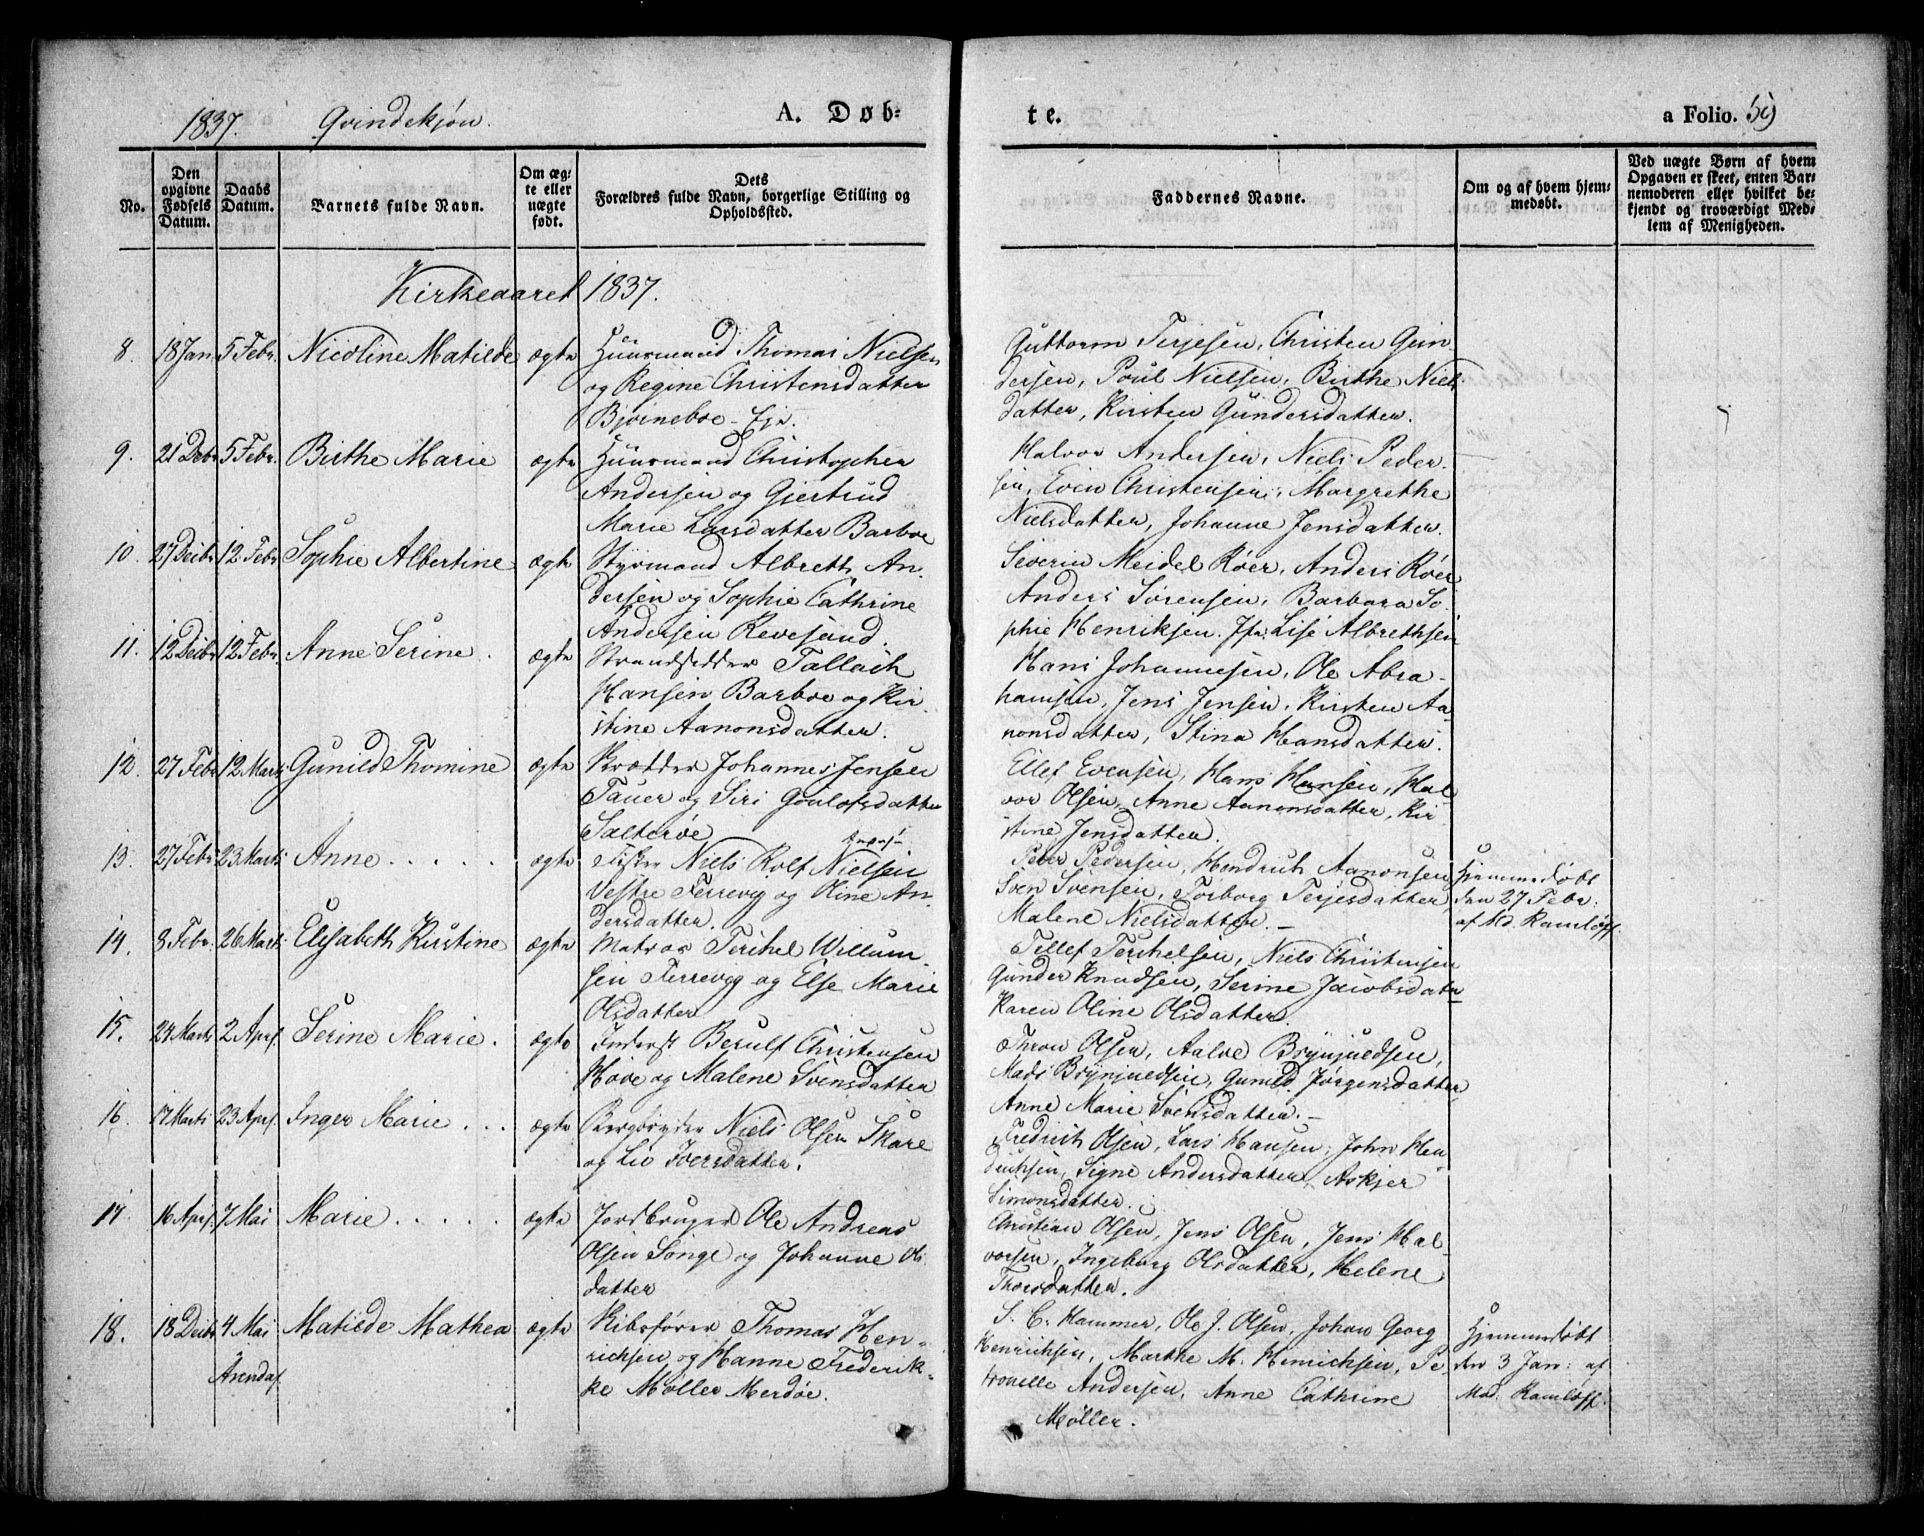 1837. Qvindekjøn. A. Døb=
te. a Folio. 59
No.
Den opgivne Fødsels Datum.
Daabs Datum.
Barnets fulde Navn.
Om æg=te eller uægte født.
Dets
Forældres fulde Navn, borgerlige Stilling og
Opholdssted.
Faddernes Navne.
Om og af hvem hjem=
medøbt.
Ved uægte Børn af hvem
Opgaven er skeet, enten Bar=
nemoderen eller hvilket be=
kjendt og troværdigt Med=
lem af Menigheden.
Kirkeaaret 1837.
8. 18 Jan. 5 Febr. Nicoline Matilde ægte Huusmand Thomas Nielsen
og Regine Christensdatter
Bjørneboe - Eje.
Guttorm Terjesen, Christen Gun
dersen, Poul Nielsen, Birthe Niels
datter, Kirsten Gundersdatter.
9. 21 Debr 5 Febr. Birthe Marie ægte Huusmand Christopher
Andersen og Gjertrud
Marie Larsdatter Barboe
Halvor Andersen, Niels Peder-
sen, Even Christensen, Margrethe
Nielsdatter, Johanne Jensdatter.
10. 27 Decbr 12 Febr Sophie Albertine ægte Styrmand Albreth An-
dersen og Sophie Cathrine
Andersen Revesand.
Severin Meidel Røer, Anders Røer
Anders Sørensen, Barbara So-
phie Henriksen. Jfr. Lise Albrethsen
11. 12 Decbr 12 Febr. Anne Serine. ægte Strandsidder Tallach
Hansen Barboe og Kir-
stine Aanonsdatter.
Hans Johannesen, Ole Abra-
hamsen, Jens Jensen, Kirsten Aa-
nonsdatter, Stina Hansdatter.
12. 27 Febr 12 Marts Gunild Thomine ægte Skrædder Johannes Jensen
Tauer og Siri Gonlofsdatter
Salterøe
Ellef Evensen, Hans Hansen, Hal
vor Olsen, Anne Aanonsdatter, Kir
stine Jensdatter.
13. 27 Febr 23 Marts Anne . . . . . ægte Fisker Niels Rolf Nielsen
Vestre Terrevig og Oline An-
dersdatter.
Peder Pedersen, Hendrich Aanonsen
Sven Svensen, Torborg Terjesdatter,
Malene Nielsdatter. -
Hjemmedøbt
den 27 Febr.
af Md. Ramløff.
14. 3 Febr. 26 Marts Elisabeth Kirstine ægte Matros Terchel Willum-
sen Terrevig og Else Marie
Olsdatter
Tellef Terchelsen, Niels Christensen
Gunder Knudsen, Serine Jacobsdatter
Karen Oline Olsdatter.
15. 24 Marts 2 Apr. Serine Marie. ægte Inderst Berulf Christensen
Hove og Malene Svensdatter
Thron Olsen, Aalve Brynjuldsen,
Mads Brynjuldsen, Gunild Jørgensdatter
Anne Marie Svensdatter. -
16. 17 Marts 23 Apr. Inger Marie . . . ægte Bergbryder Niels Olsen Skare
og Liv Iversdatter.
Fredrich Olsen, Lars Hansen, John Hen-
drichsen, Signe Andersdatter, Askjer
Simonsdatter.
17. 16 Apr. 7 Mai Marie . . . . . ægte Jordbruger Ole Andreas
Olsen Songe og Johanne Ols
datter
Christian Olsen, Jens Olsen, Jens Hal-
vorsen, Ingeborg Olsdatter, Helene
Thorsdatter.
18. 18 Decbr 4 Mai Matilde Mathea ægte Skibsfører Thomas Hen-
Arendal
richsen og Hanne Frederik-
ke Møller Merdøe.
S. C. Hammer, Ole J. Olsen, Johan Georg
Henrichsen, Marthe M. Henrichsen, Pe
tronelle Andersen, Anne Cathrine
Møller.
Hjemmedøbt
den 3 Jan: af
Mad. Ramløff.